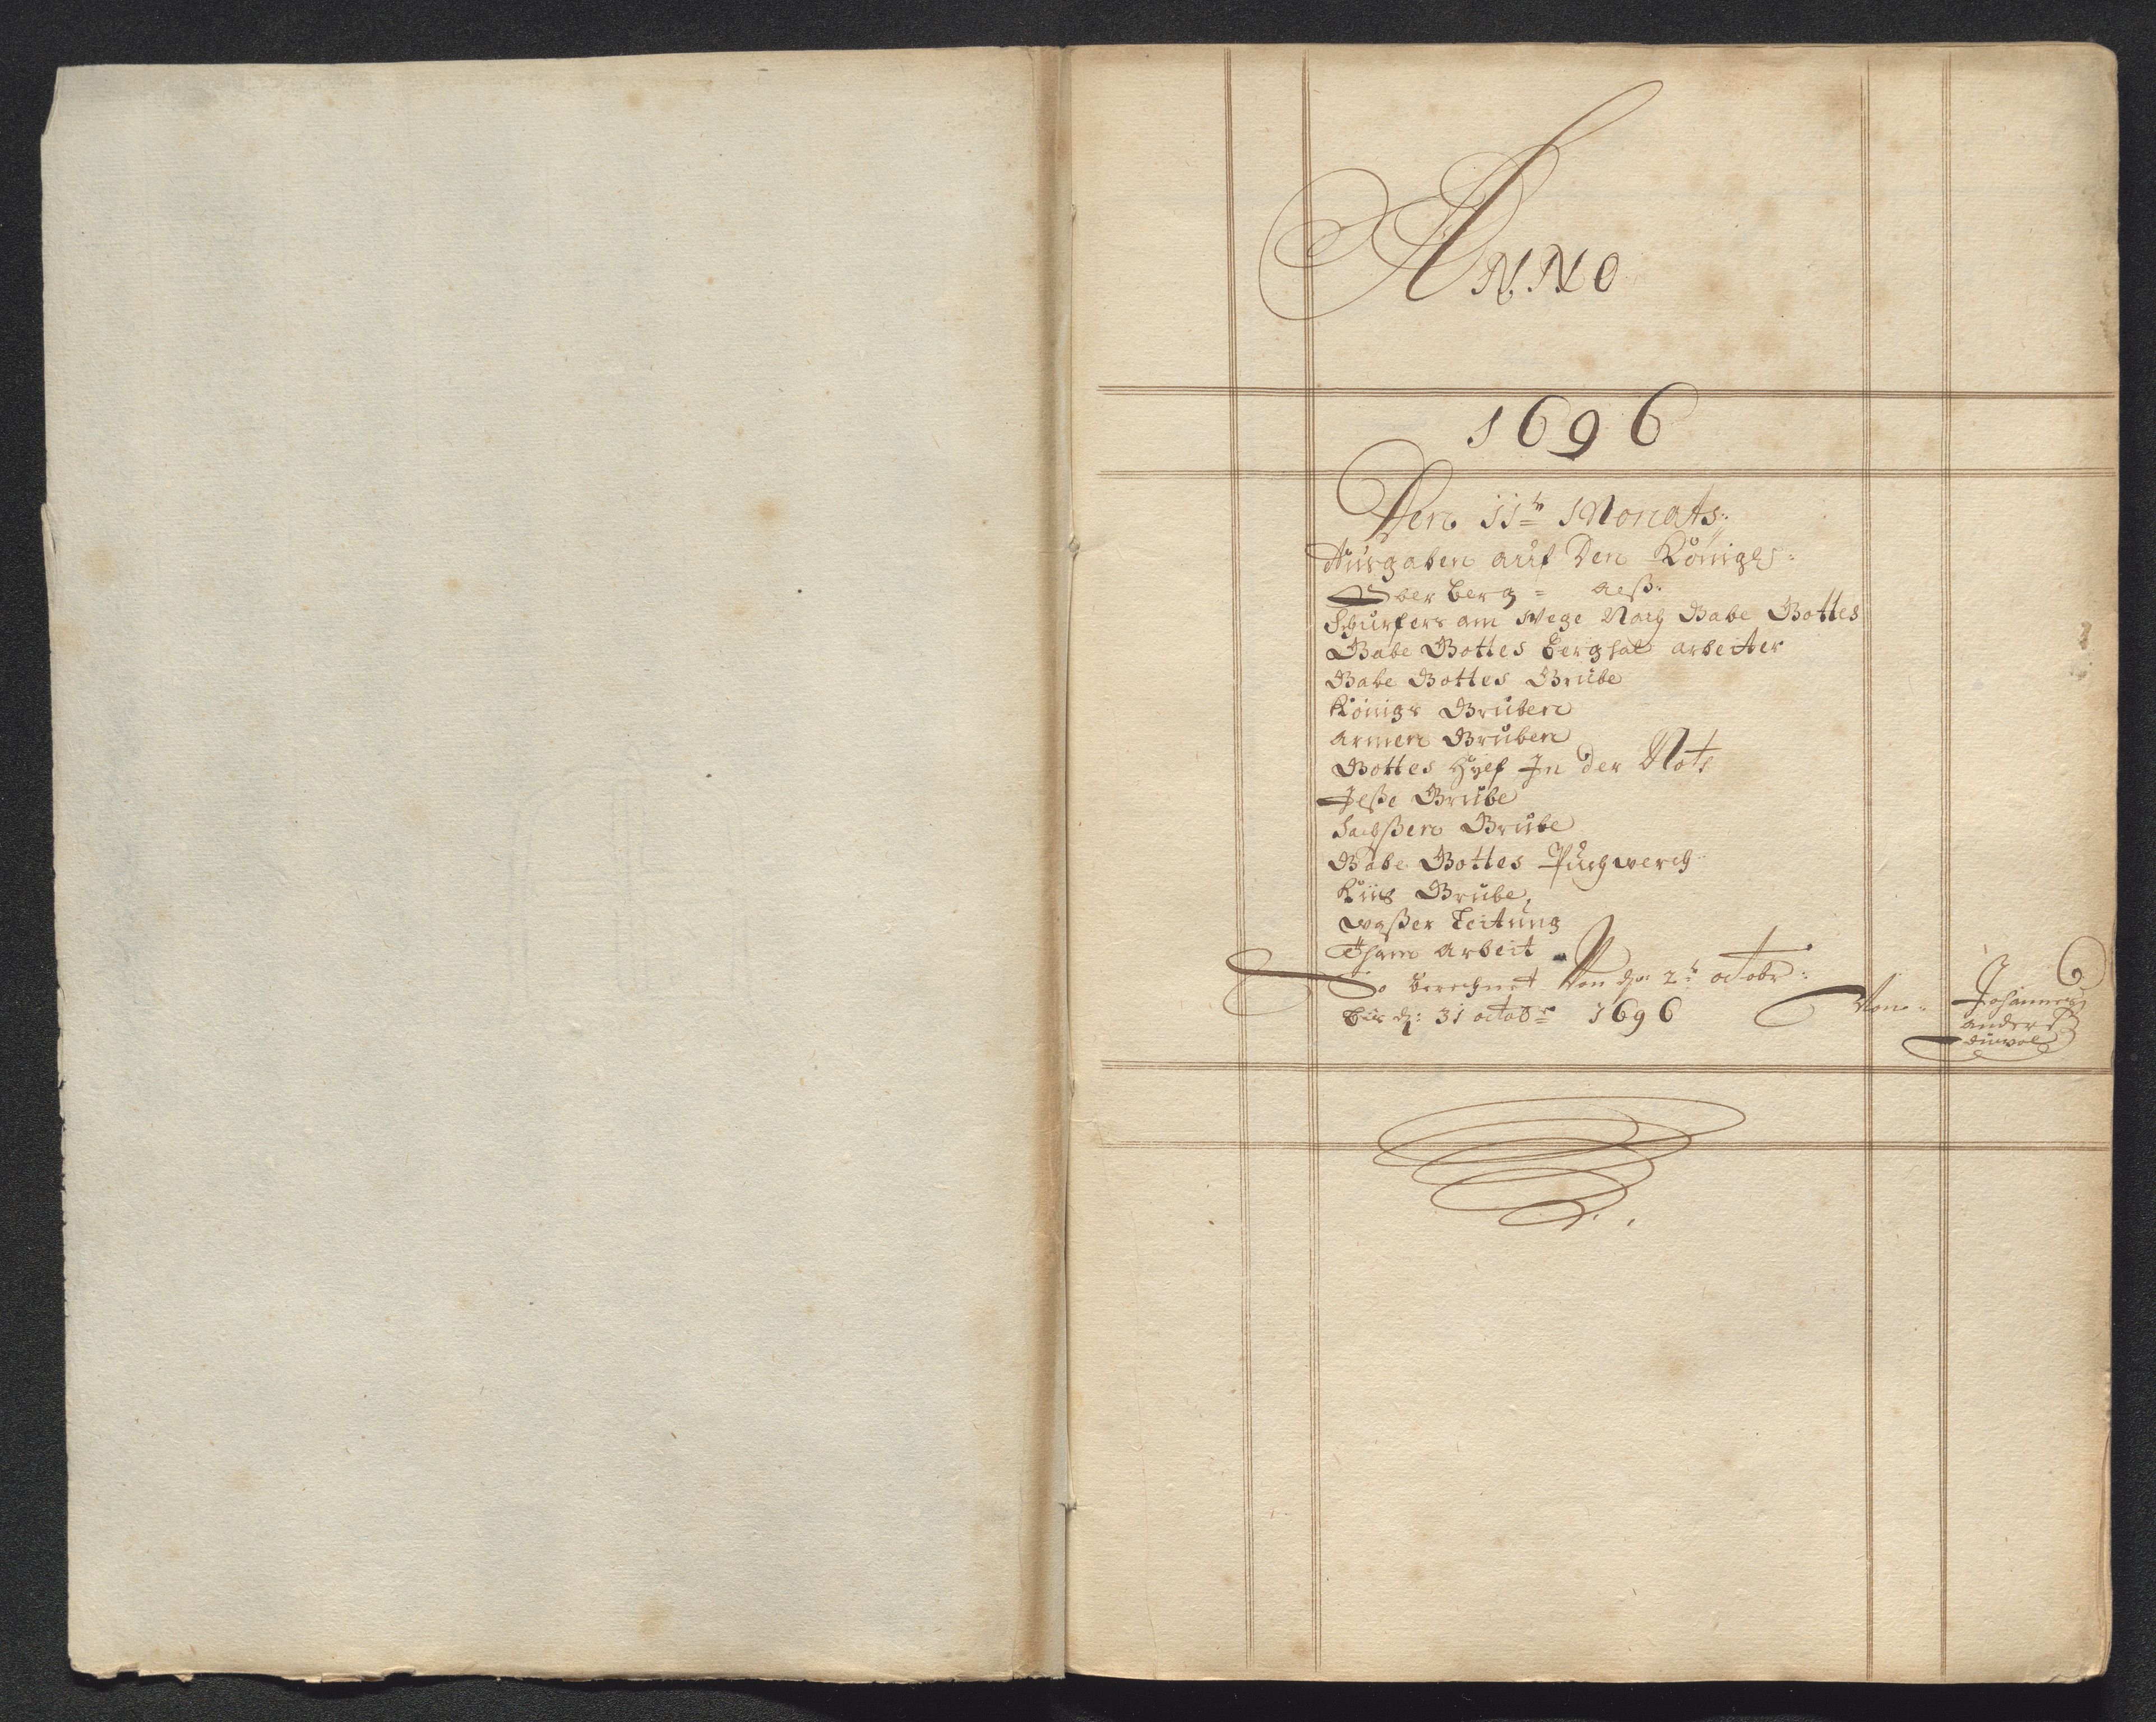 ANNO
1696
Den 11te Monats:
Ausgaben auf Den Königl:
Ober Berg =
Schurfers am Wege Nach Gabe Gottes
Gabe Gottes Berghal arbeiter
Gabe Gottes Grube
Königs Gruben
armen Gruben
Gottes Hylf In der Noht
Grube
Sachßen Grube
Gabe Gottes Puchwerch
Kiis Grube,
waßer Leitung
Tham arbeit
So berechnet Von dn 2te octobr:
bis dn: 31 octobr 1696
Von
Johannes
anders